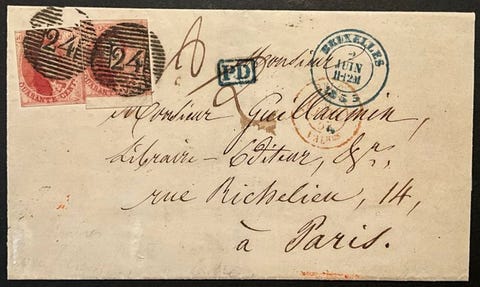 24 24
QUARANTE CENT
PD
BRUXELLES
JUIN
1855
VALNES
Monsieur
Monsieur Guillaumin,
Libraire-Editeur, &r,
rue Richelieu, 14,
à Paris.